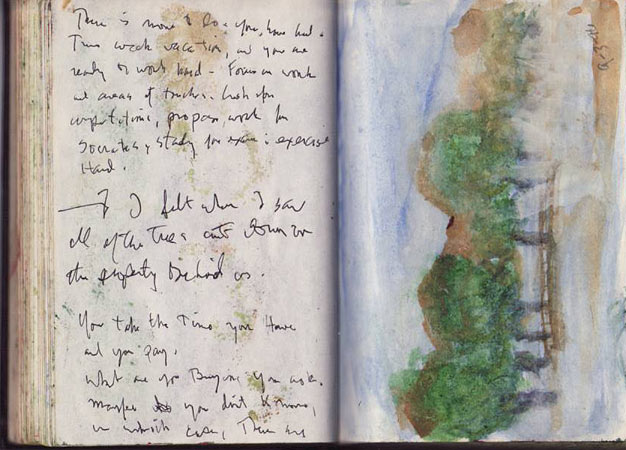 There is more to do - you have had a
Two week vacation, and you are
ready to work hard - Focus on work
and areas of
competitions, prepare work for
Socrates, study for exam: exercise
Hard.
I felt when I saw
all of the trees cut down on
the property behind us.
You take the Time you Have
and you pay.
what are you Buying, You ask.
maybe you don't Know,
in which case, There are